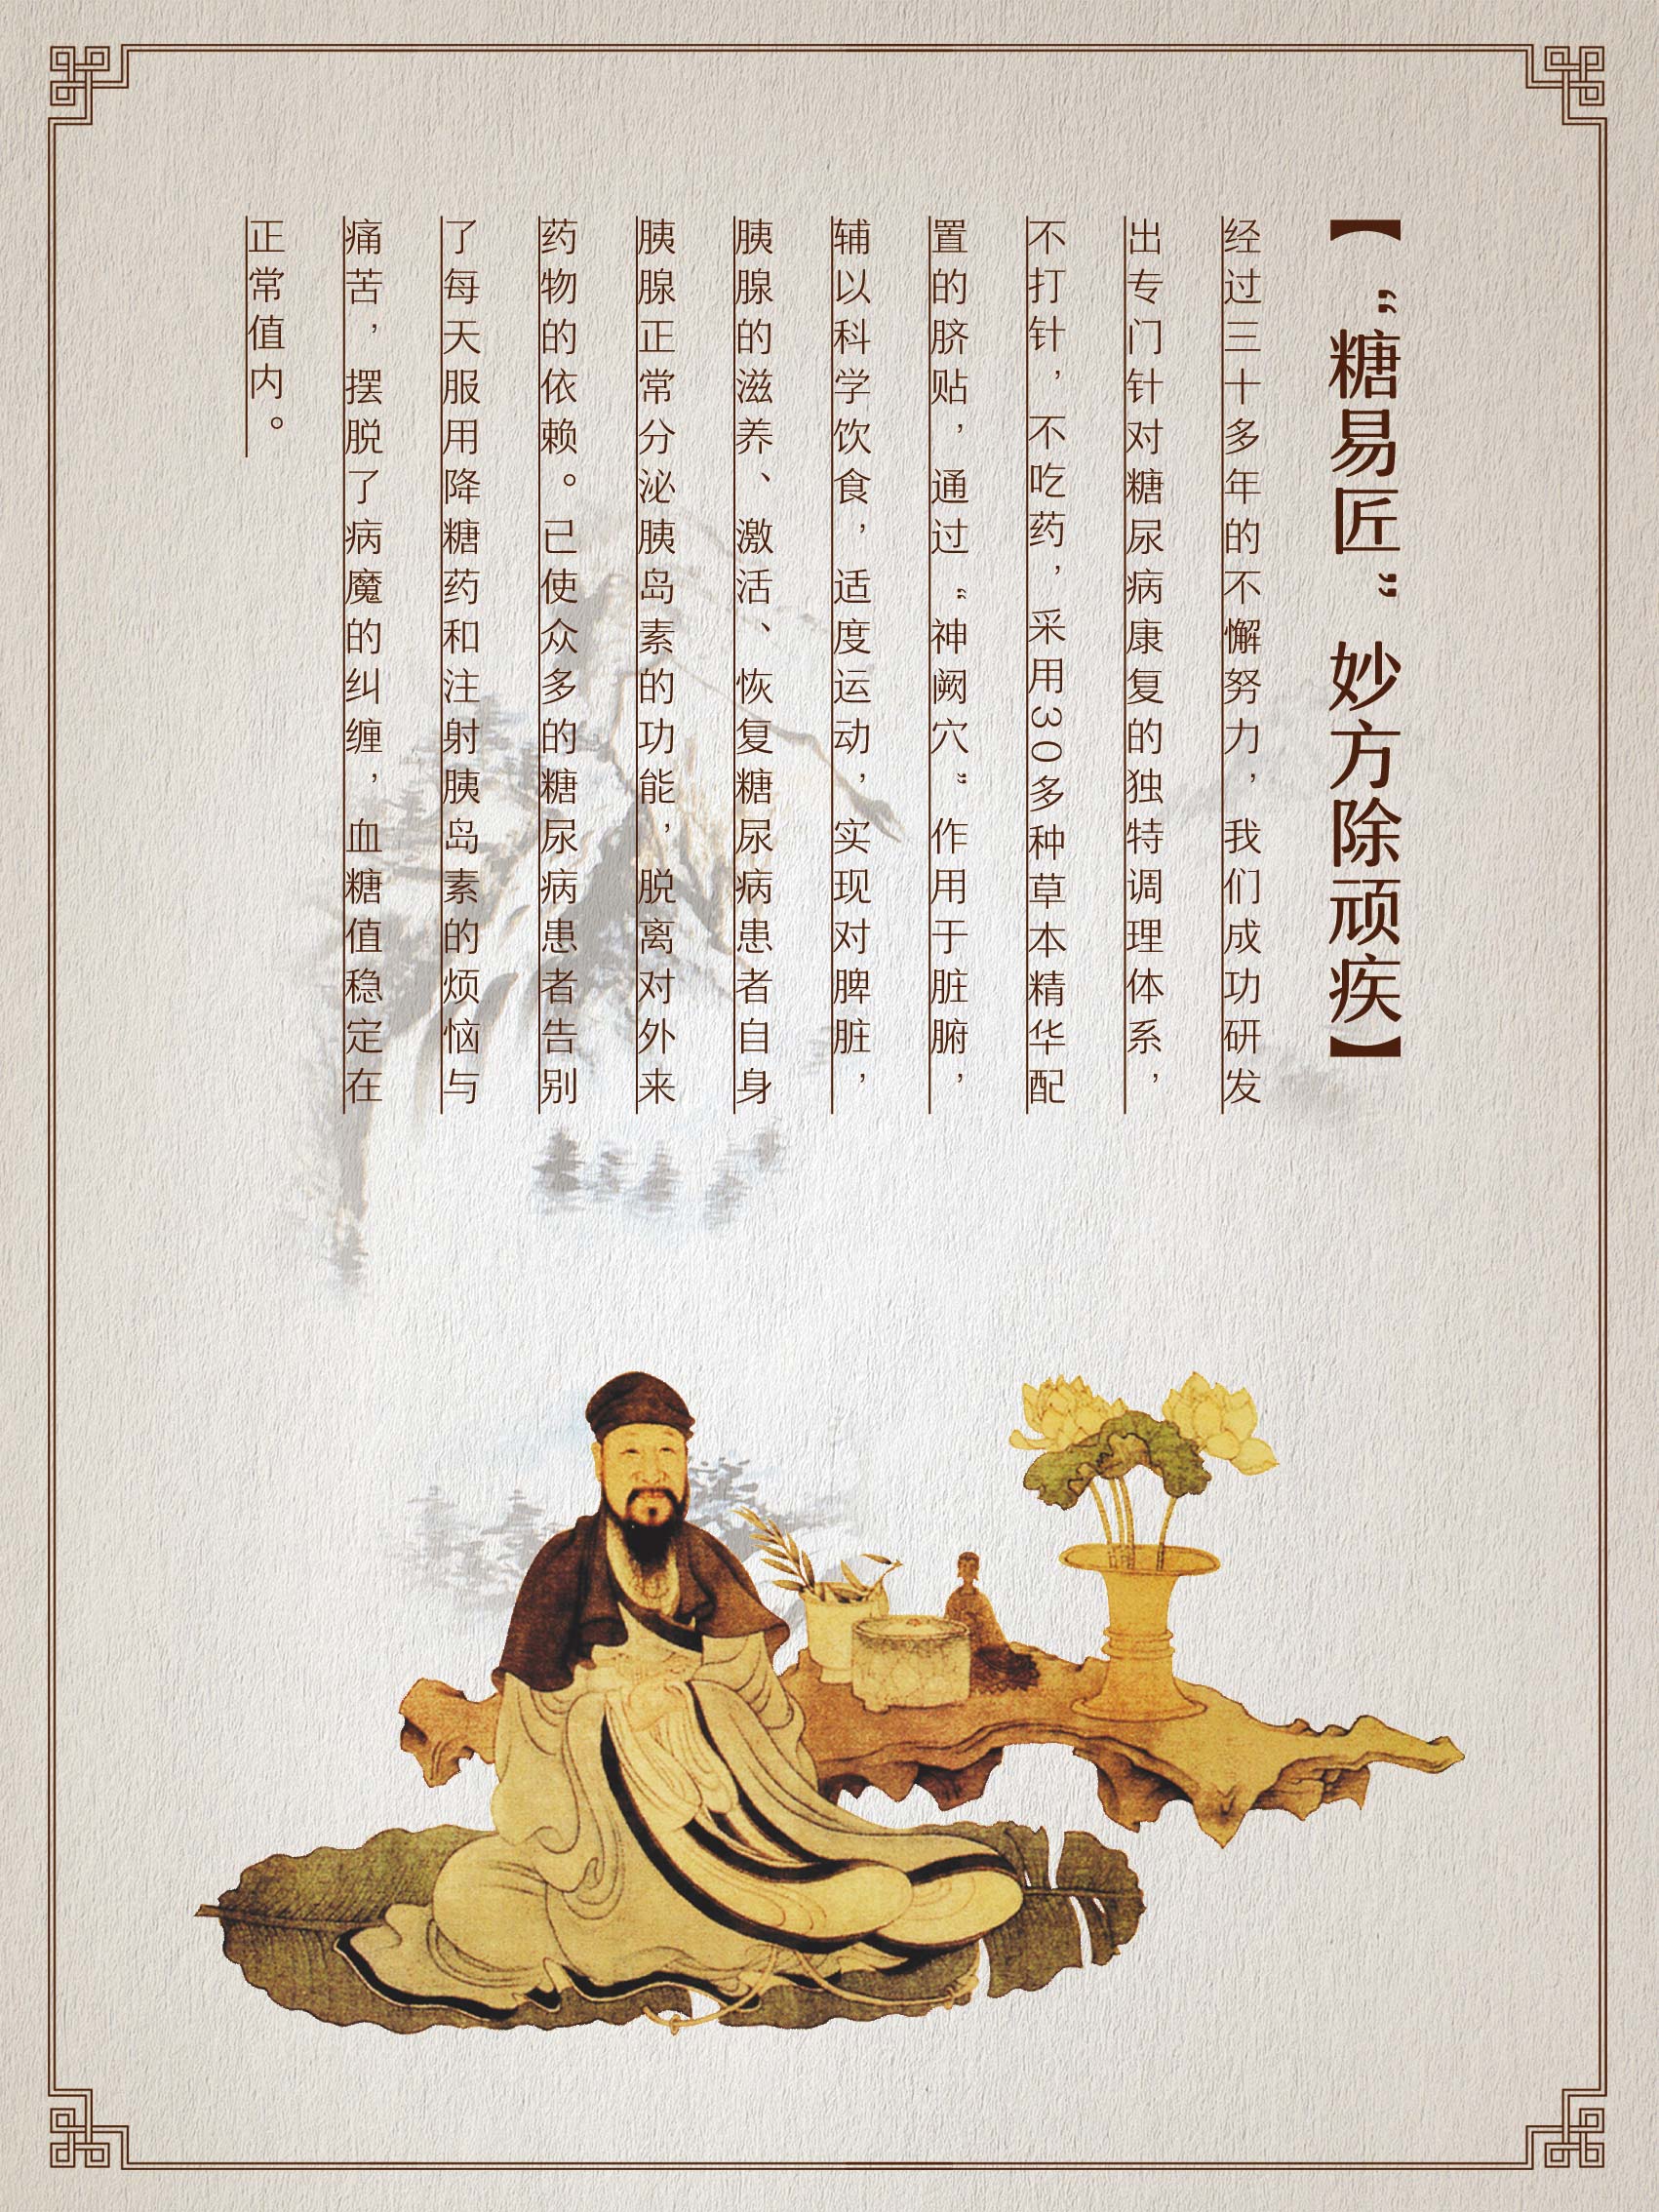 【“糖易匠”妙方除顽疾】
经过三十多年的不懈努力，我们成功研发
出专门针对糖尿病康复的独特调理体系，
不打针，不吃药，采用30多种草本精华配
置的脐贴，通过“神阙穴”作用于脏腑，
辅以科学饮食，适度运动，实现对脾脏，
胰腺的滋养、激活、恢复糖尿病患者自身
胰腺正常分泌胰岛素的功能，脱离对外来
药物的依赖。已使众多的糖尿病患者告别
了每天服用降糖药和注射胰岛素的烦恼与
痛苦，摆脱了病魔的纠缠，血糖值稳定在
正常值内。